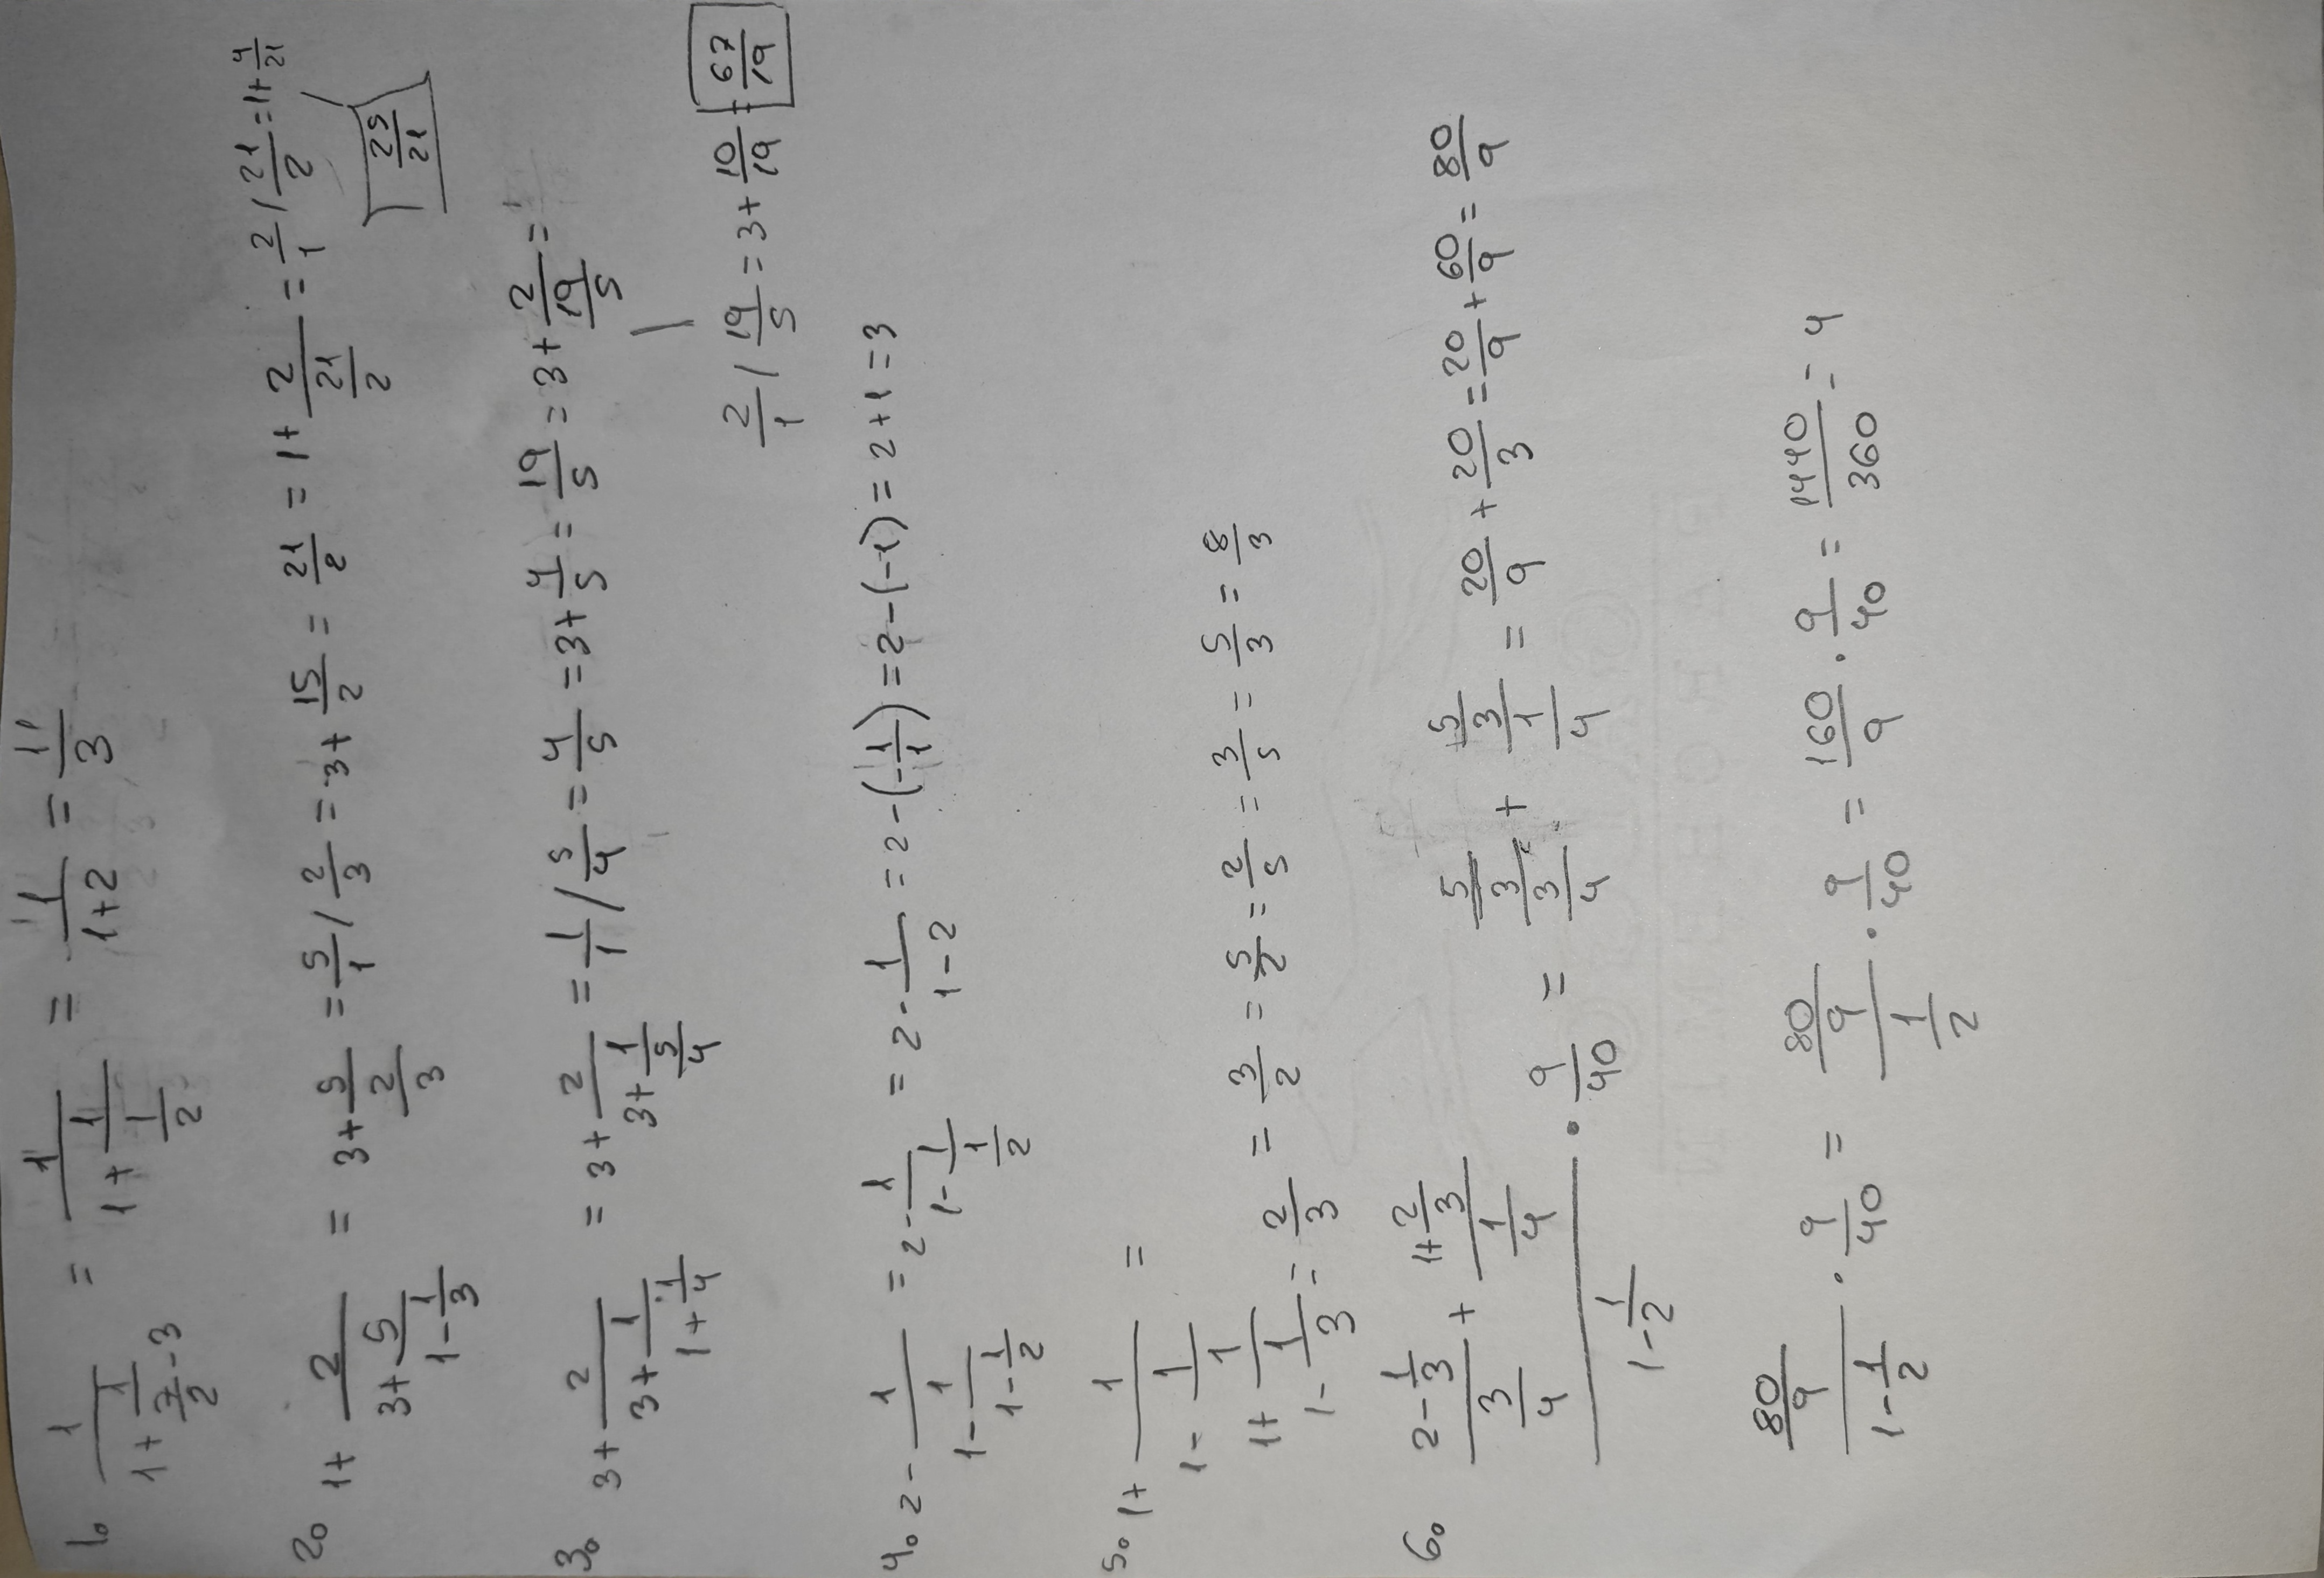 1. 1/(1+1/(7/2-3)) = 1/(1+1/(1/2)) = 1/(1+2) = 1/3
2. 1+2/(3+5/(1-1/3)) = 3+5/(2/3) = 5/1 / 2/3 = 3+15/2 = 21/2 = 1+2/(21/2) = 2/1 / 21/2 = 1+4/21
25/21
3. 3+2/(3+1/(1+1/4)) = 3+2/(3+1/(5/4)) = 1/1 / 5/4 = 4/5 = 3+4/5 = 19/5 = 3+2/(19/5) =
2/1 / 19/5 = 3+10/19 = 67/19
4. 2-1/(1-1/(1-1/2)) = 2-1/(1-1/(1/2)) = 2-1/(1-2) = 2-(-1/1) = 2-(-1) = 2+1 = 3
5. 1+1/(1-1/(1+1/(1-1/3))) =
= 2/3 = 3/2 = 5/2 = 2/5 = 3/5 = 5/3 = 8/3
6. ((2-1/3)/(3/4) + (1+2/3)/(1/4))/(1-1/2) · 9/40 = (5/3)/(3/4) + (5/3)/(1/4) = 20/9 + 20/3 = 20/9 + 60/9 = 80/9
(80/9)/(1-1/2) · 9/40 = (80/9)/(1/2) · 9/40 = 160/9 · 9/40 = 1440/360 = 4